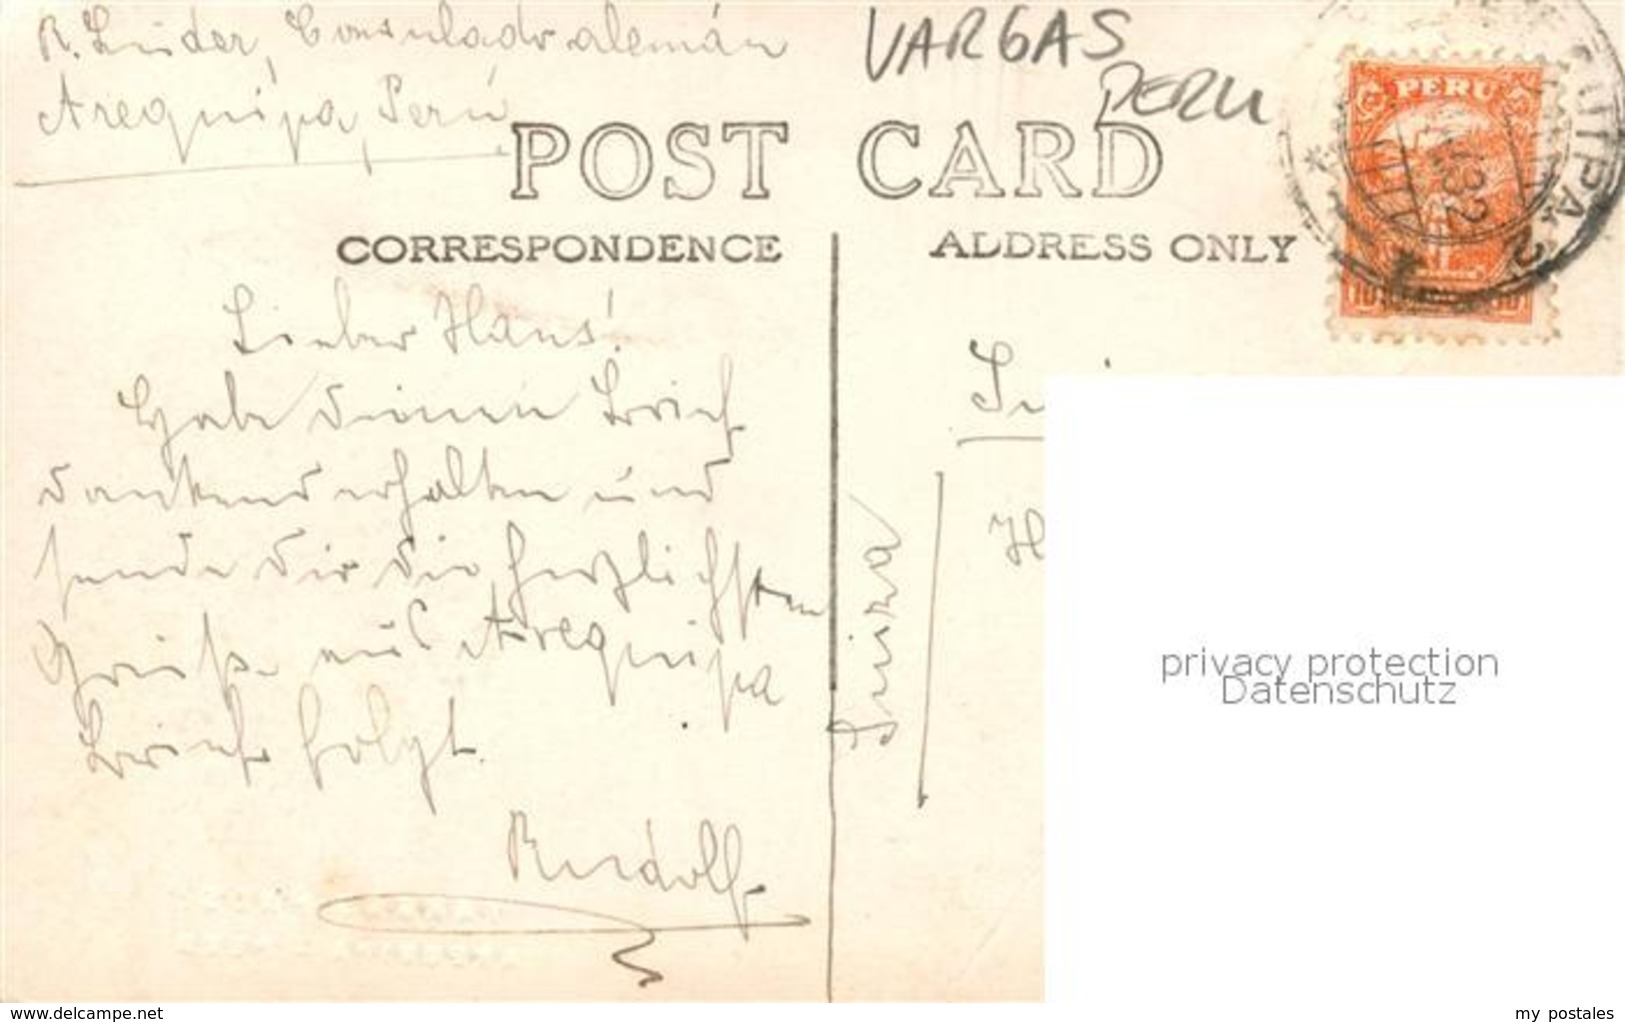 R. Linder, Consulado alemán
Arequipa, Perú
VARGAS
PERU
POST CARD
CORRESPONDENCE
ADDRESS ONLY
PERU
Lieber Hans!
Habe deinen Brief
dankend erhalten und
sende dir die herzlichsten
Grüße aus Arequipa
Brief folgt.
Rudolf
Suiza
privacy protection
Datenschutz
www.delcampe.net
my_postales